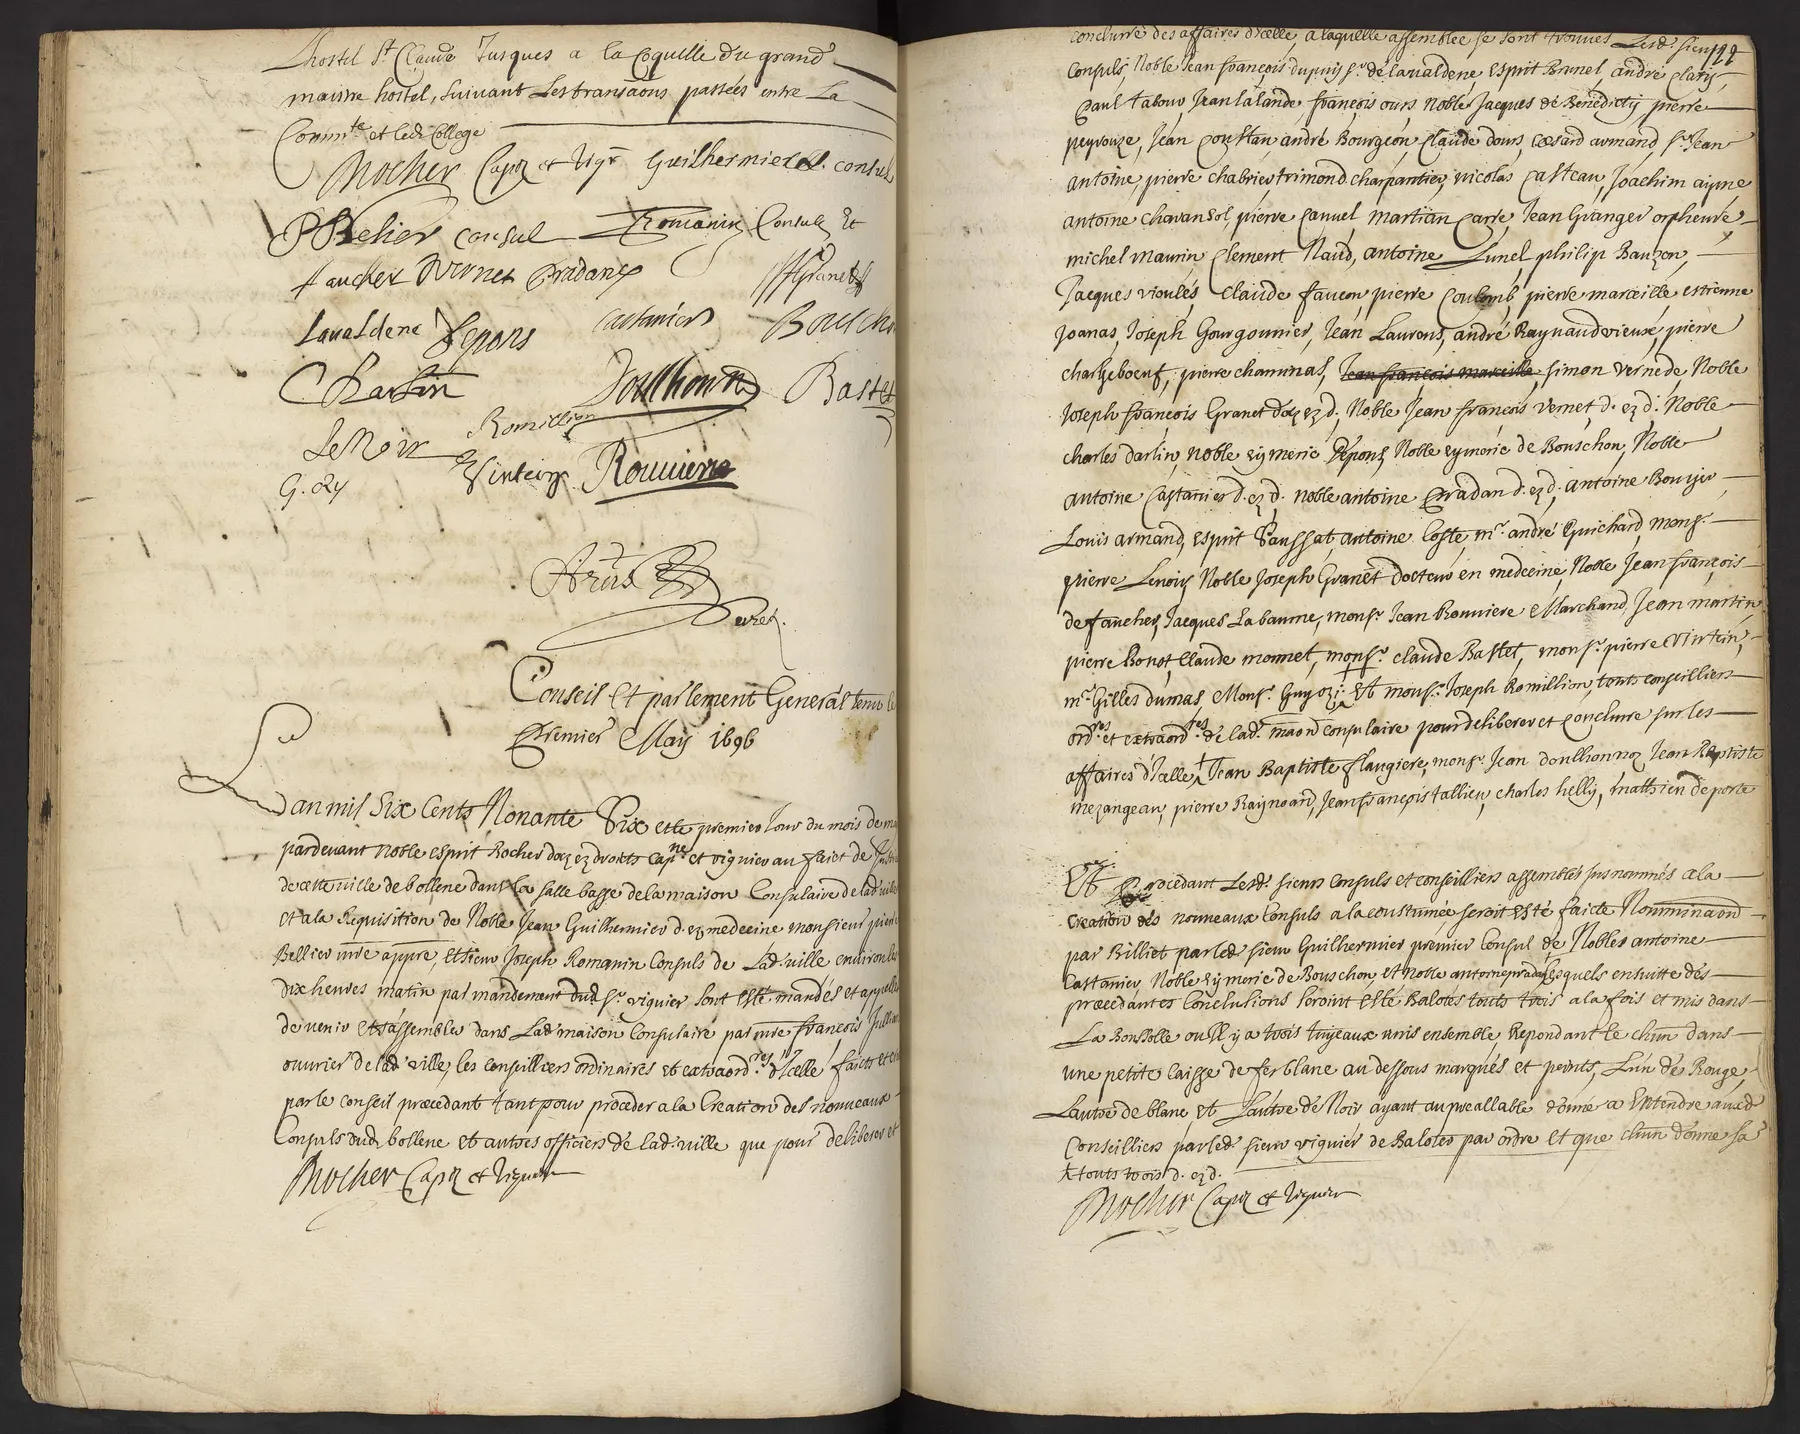 Lhostel St Claude Jusques a la Coquille du grand
maistre hostel, suivant Les transaõns passées entre La
Commte et led College
Rocher Capne et Vigr Guilhermier consul
P Belier consul Romanin Consul Et
faucher Vernet Pradany JfGranet
Lavaldene Depons Castanier Bousch
C Darlin Doulhonn Bastet
LeNoir Romillion
G. ozy Vinteing Rouviere
Secret.
Conseil Et parlement General tenu le
Premier May 1696
Lan mil Six Cents Nonante Six et le premier Jour du mois de ma
pardevant noble esprit Rocher docz ez droicts capne et viguier au faict de Justi
de cette ville de bollene dans la salle basse de la maison Consulaire de lad ville
et a la Requisition de Noble Jean Guilhermier d. ez medecine monsieur pierre
Bellier nre appre, Et Sieur Joseph Romanin Consuls de Lad. ville environ les
dix heures matin par mandement dud sr. viguier sont Esté mandés et appellés
de venir et s'assembler dans Lad maison Consulaire par nre françois Jullian
ouvrier de lad ville, les conseilliers ordinaires et extraordres. d'Icelle faicts et
par le conseil præcedant tant pour proceder a la Creation des nouveaux
Consuls dud bollene et autres officiers de lad. ville que pour deliberer et
Rocher Capne et Viguier
conclurre des affaires d'icelle, a laquelle assemblée se sont trouvés Lesd. sieurs
Consuls, Noble Jean françois dupuy sr. de lavaldene, esprit Brunel, andré Clary,
Paul tabour, Jean Lalande, françois ours Noble Jacques de Benedicty pierre
peyrouze, Jean Constan, andré Bourgeon, Claude dours, cæsard armand, sr. Jean
antoine, pierre chabrier trimond charpantier, nicolas Casteau, Joachim ayme
antoine chavansol, pierre Canuel, martian Carre, Jean Granger orpheuvre
michel maurin, Clement Naud, antoine Lunel, philip Bauzon,
Jacques violés, Claude faucon pierre Coulomb, pierre marceille, estienne
Joanas, Joseph Gourgounier, Jean Laurens, andré Raynaud vieux, pierre
chargeboeuf, pierre chaminas, Jean françois marceille, simon vernede, Noble
Joseph françois Granet docz ez d. Noble Jean françois vernet d. ez d. Noble
charles darlin, noble eymeric Depons Noble eymeric de Bouschon, Noble
antoine Castanier d. ez d. noble antoine Pradan d. ez d. antoine Bouyer
Louis armand, esprit Saussat, antoine Coste, mr. andré Guichard, monsr.
pierre Lenoir, Noble Joseph Granet docteur en medecine, Noble Jean françois
de faucher, Jacques Labaume, monsr. Jean Rouviere Marchand, Jean martin
pierre Bonot, Claude monnet, monsr. claude Bastet, monsr. pierre Vintein,
mr. Gilles dumas, Monsr. Guy ozi + Et monsr. Joseph Romillion, touts conseilliers
ordres et extraordres. de lad. maõn consulaire pour deliberer et Conclurre sur les
affaires d'Icelle + Jean Baptiste flaugiere, monsr. Jean doulhonnoz Jean Baptiste
mezangeau, pierre Raynoard, Jean françois tallieu, charles helly, mathieu deporte
Et Procedant Lesd. sieurs Consuls et conseilliers assemblés susnommés a la
Creation des nouveaux Consuls a la coustumée seroit esté faicte Nominaõn
par Billiet par led sieur Guilhermier premier Consul de Nobles antoine
Castanier, Noble Eymeric de Bouschon, et noble antoine pradan lesquels ensuitte des
præcedantes Conclusions seroint esté Balotés touts trois a la fois et mis dans
La Boussolle ou Il y a trois tuyeaux unis ensemble, Repondant le chun dans
une petite caisse de fer blanc au dessous marqués et peints, L'un de Rouge,
Lautre de blanc, et Lautre de Noir ayant au preallable donné a Entendre auxd
Conseilliers par led. sieur viguier de Baloter par ordre et que chun donne sa
+ touts trois d. ez d.
Rocher Capne et Viguier